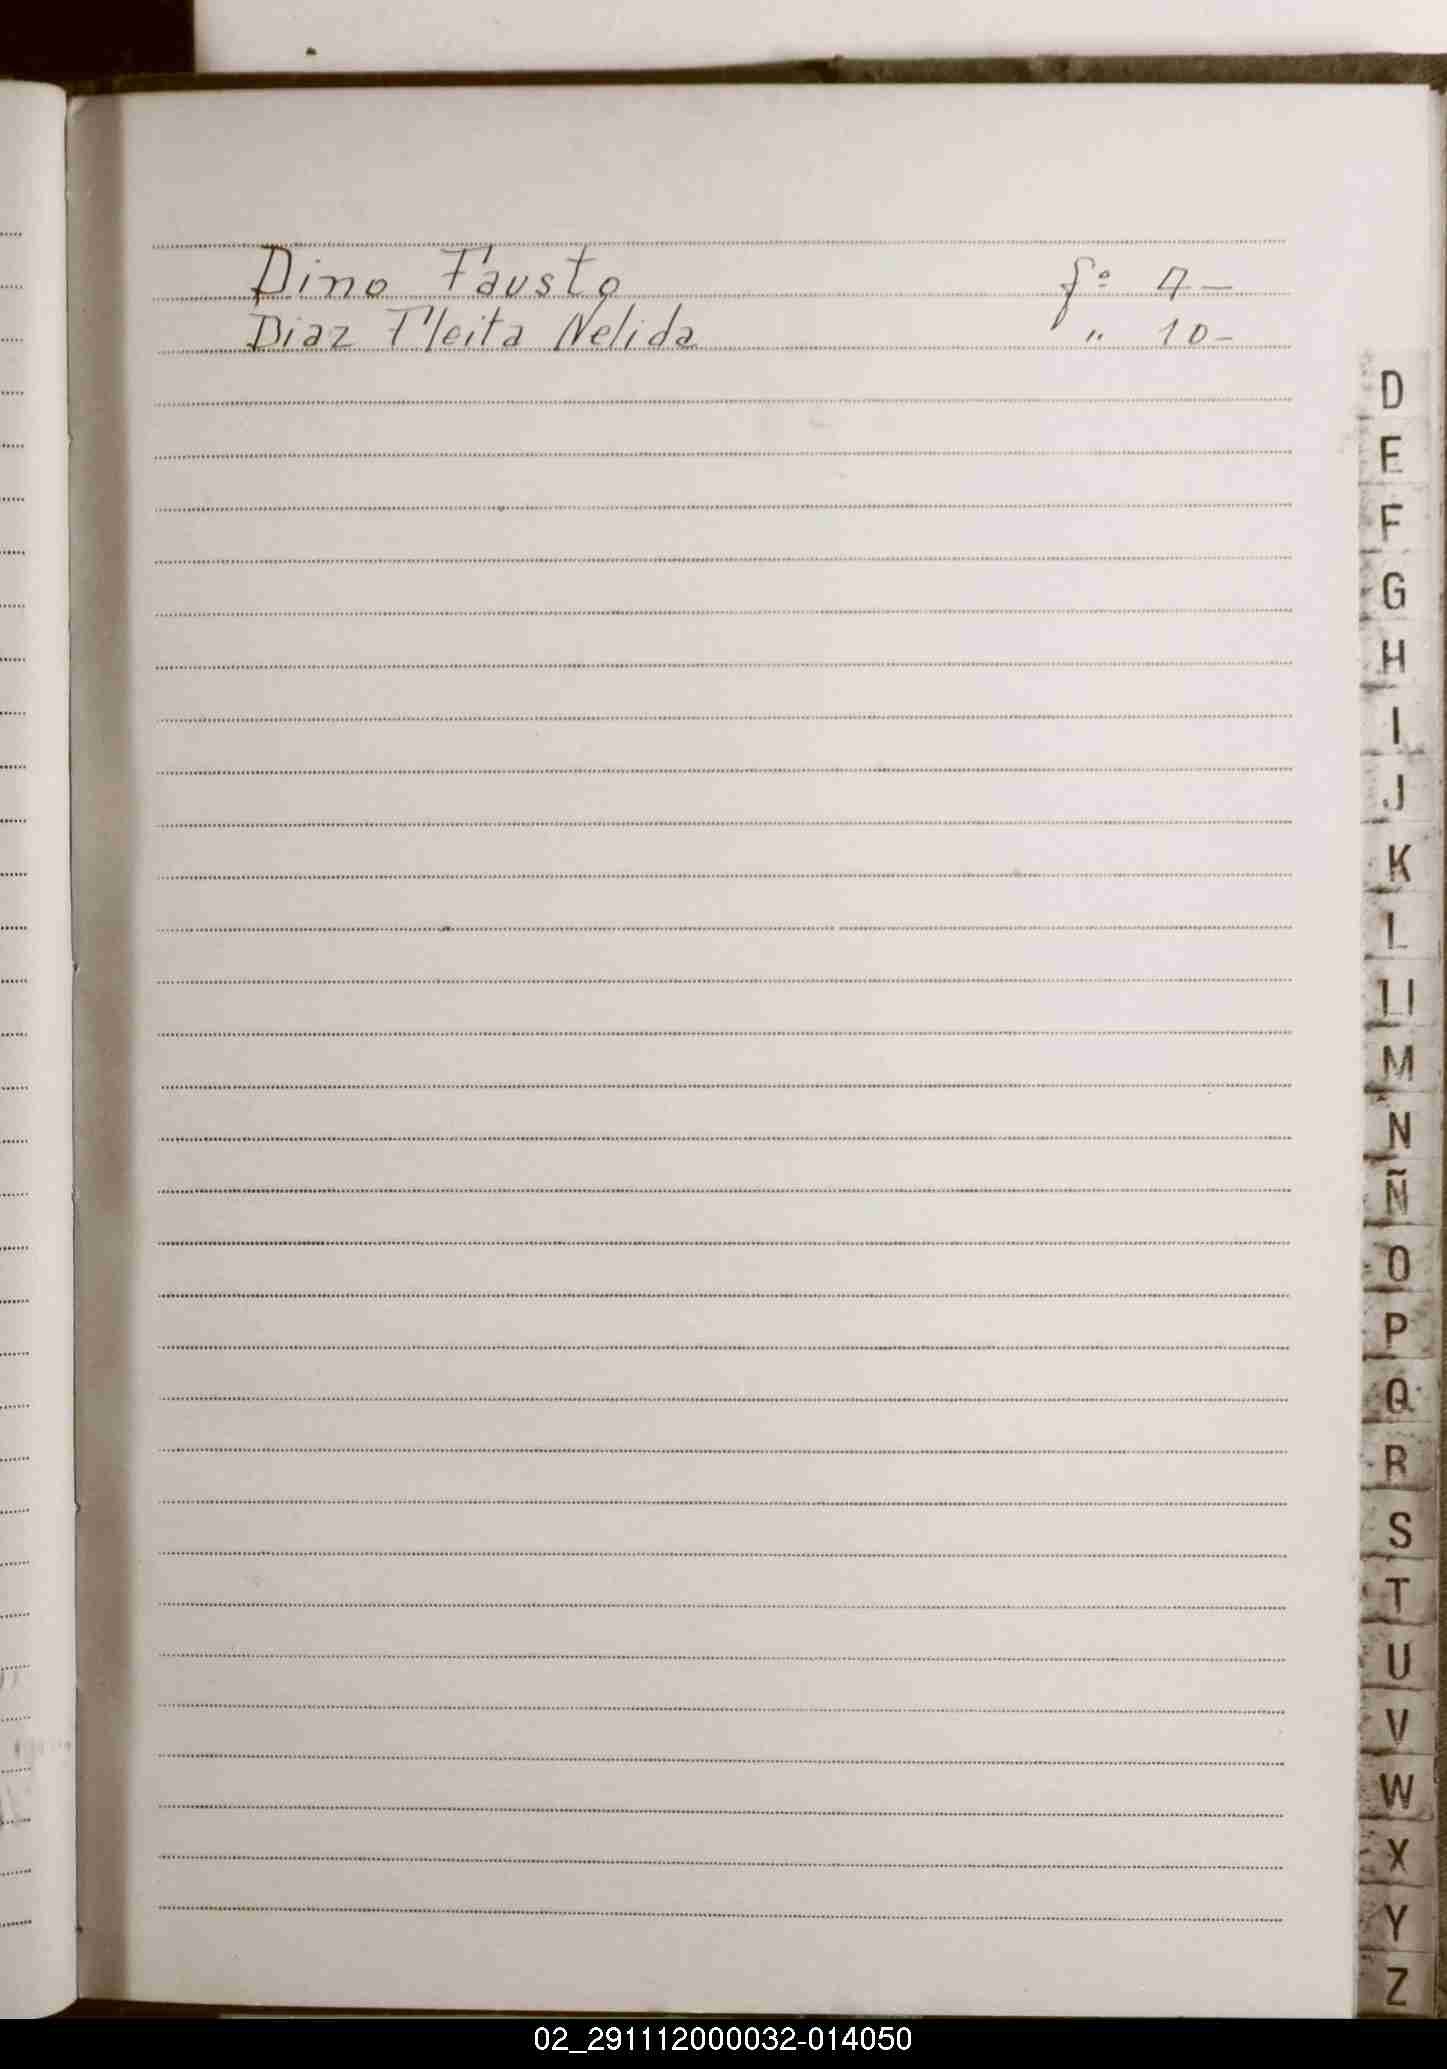 Dino Fausto fº 4-
Diaz Fleita Nelida " 10-
D
E
F
G
H
I
J
K
L
Ll
M
N
Ñ
O
P
Q
R
S
T
U
V
W
X
Y
Z
02_291112000032-014050